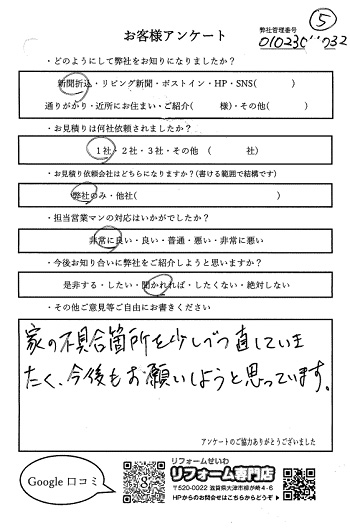 ⑤
お客様アンケート
弊社管理番号
・どのようにして弊社をお知りになりましたか？
新聞折込・リビング新聞・ポストイン・HP・SNS(　　　)
通りがかり・近所にお住まい・ご紹介(　　　様)・その他(　　　)
・お見積りは何社依頼されましたか？
1社・2社・3社・その他　(　　　社)
・お見積り依頼会社はどちらになりますか？(書ける範囲で結構です)
弊社のみ・他社(　　　)
・担当営業マンの対応はいかがでしたか？
非常に良い・良い・普通・悪い・非常に悪い
・今後お知り合いに弊社をご紹介しようと思いますか？
是非する・したい・聞かれれば・したくない・絶対しない
・その他ご意見等ご自由にお書きください
家の不具合箇所を少しづつ直していき
たく、今後もお願いしようと思っています。
アンケートのご協力ありがとうございました
Google 口コミ
リフォームせいわ
リフォーム専門店
〒520-0022 滋賀県大津市柳が崎4-6
HPからのお問合せはこちらからどうぞ